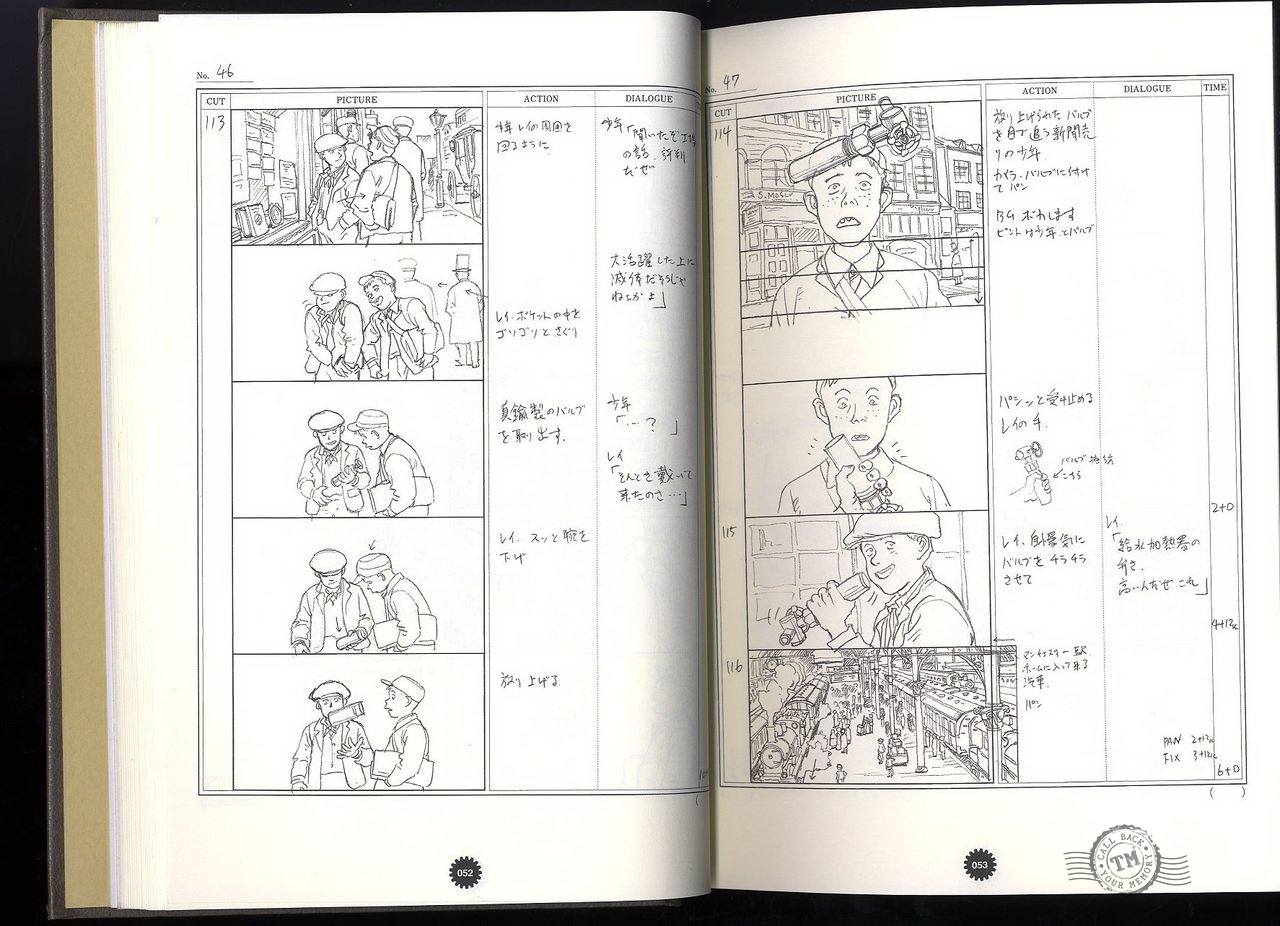 No. 46
CUT
PICTURE
ACTION
DIALOGUE
113
少年 レイの周囲を
回るように
少年「聞いたぞ 工場
の話、評判
だぜ
大活躍した上に
減俸だそうじゃ
ねェかよ」
レイ、ポケットの中を
ゴソゴソとさぐり
真鍮製のバルブ
を取り出す。
少年
「…?」
レイ
「そんとき戴いて
来たのさ…」
レイ、スッと腕を
下げ
放り上げる
052
No. 47
CUT
PICTURE
ACTION
DIALOGUE
TIME
114
S. MOSE
放り上げられたバルブ
を目で追う新聞売
りの少年
カメラ、バルブに付け
て パン
BG ボカします
ピントは少年とバルブ
パシンと受け止める
レイの手。
バルブ
こちら
2+0
115
レイ、
バルブを チラチラ
させて
レイ
「給水加熱器の
弁さ、
高いんだぜ これ」
4+12k
116
マンチェスター駅
ホームに入って来る
汽車
パン
PAN 2+12k
FIX 3+12k
6+0
( )
053
CALL BACK
TM
YOUR MEMORY